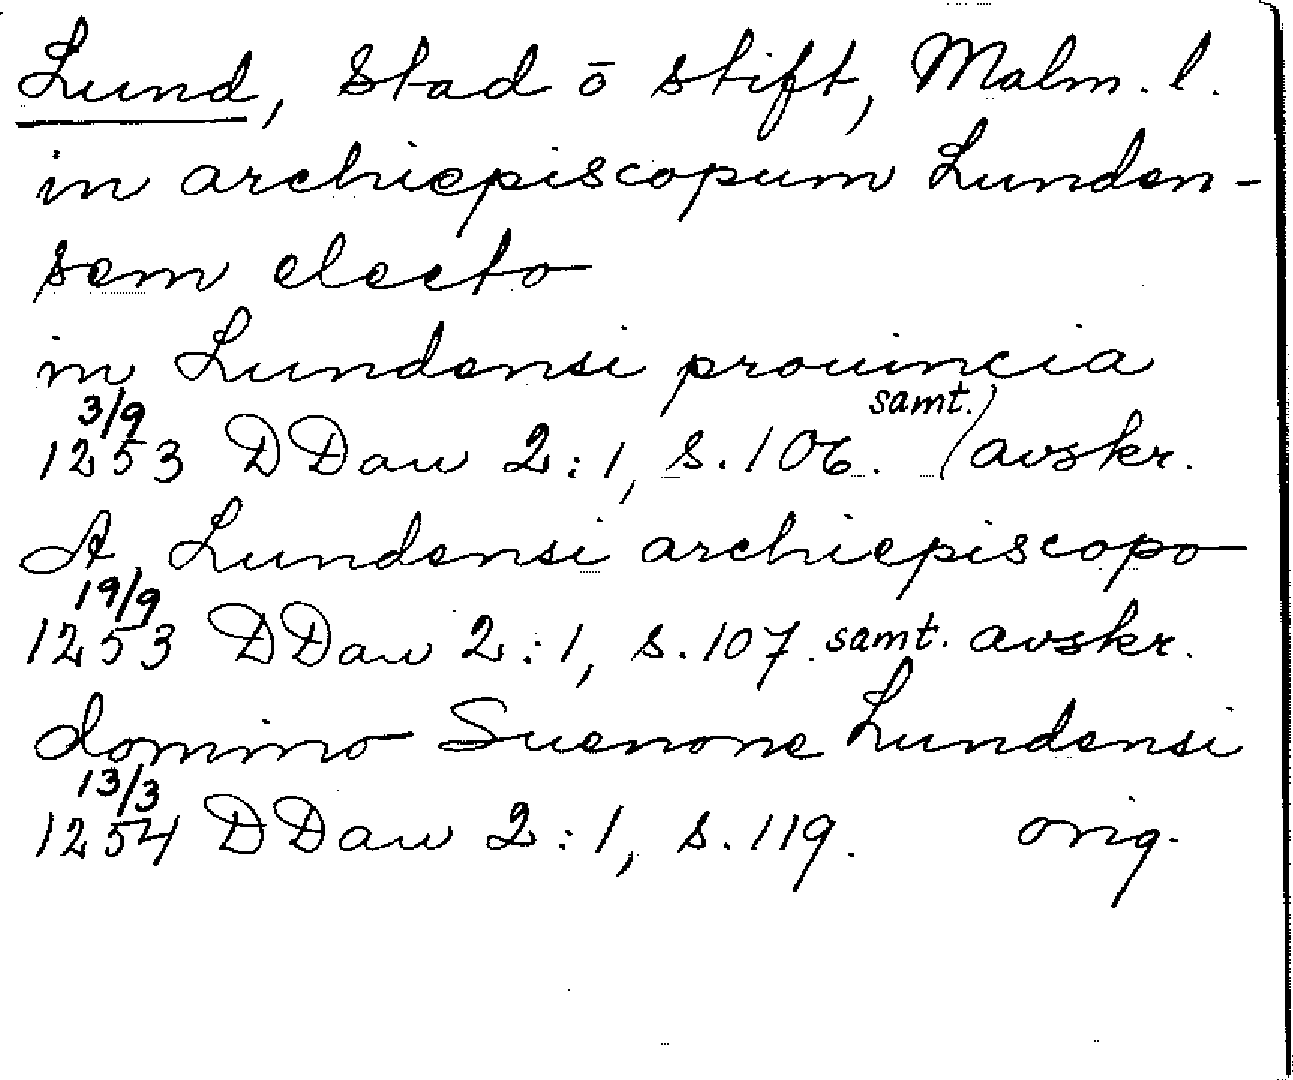 Lund, Stad ō stift, Malm. l.
in archiepiscopum Lunden-
sem electo
in Lundensi prouincia
3/9
1253 DDan 2:1, s. 106. samt. avskr.
A Lundensi archiepiscopo
19/9
1253 DDan 2:1, s. 107. samt. avskr.
domino Suenone Lundensi
13/3
1254 DDan 2:1, s. 119. orig.